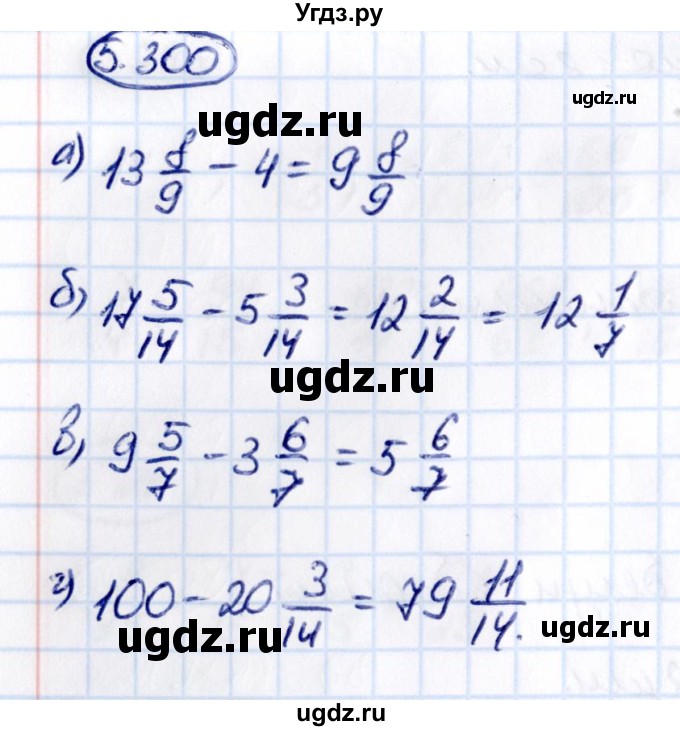 Угдз.ру
5.300
ugdz.ru
ugdz.ru
а) 13 8/9 - 4 = 9 8/9
б) 17 5/14 - 5 3/14 = 12 2/14 = 12 1/7
ugdz.ru
ugdz.ru
в) 9 5/7 - 3 6/7 = 5 6/7
г) 100 - 20 3/14 = 79 11/14.
ugdz.ru
ugdz.ru
ugdz.ru